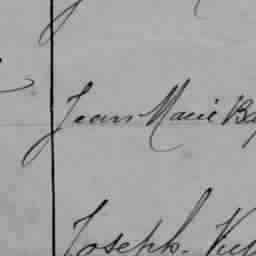 Jean Marie Ba
Joseph. Vic